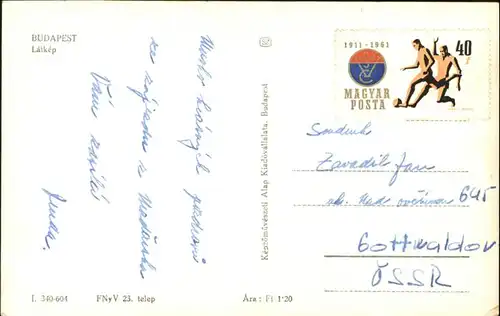 BUDAPEST
Látkép
Mnoho krásných pozdravů
ze zájezdu z Maďarska
Vám zasílá
Jenda.
I. 340-604
FNyV 23. telep
Ára: Ft 1·20
Képzőművészeti Alap Kiadóvállalata, Budapest
1911-1961
VSC
MAGYAR
POSTA
40
f
Soudruh
Zavadil Jan
ul. Nad ovčírnou 645
Gottwaldov
ČSSR